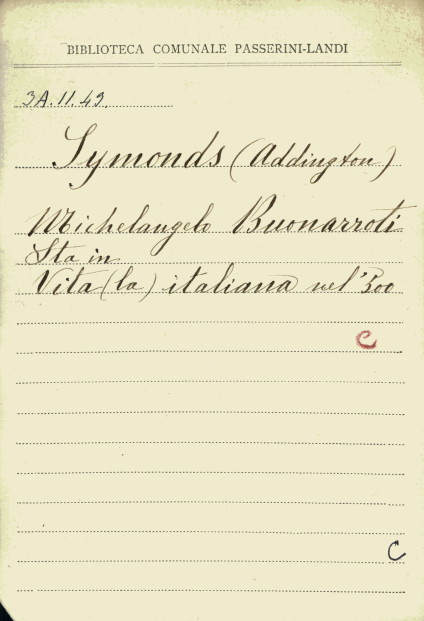 BIBLIOTECA COMUNALE PASSERINI-LANDI
3A.11.49.
Symonds (Addington)
Michelangelo Buonarroti
Sta in
Vita (la) italiana nel '500
C
C